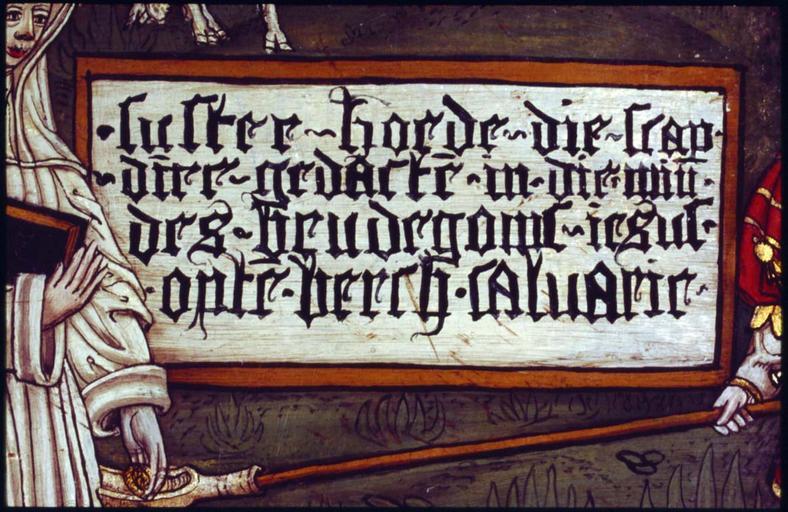 ·suster~hoede~die~scap·
gedāctē·in·die·
des~b̄eudegoms~iesus·
·optē·berch·caluarie·